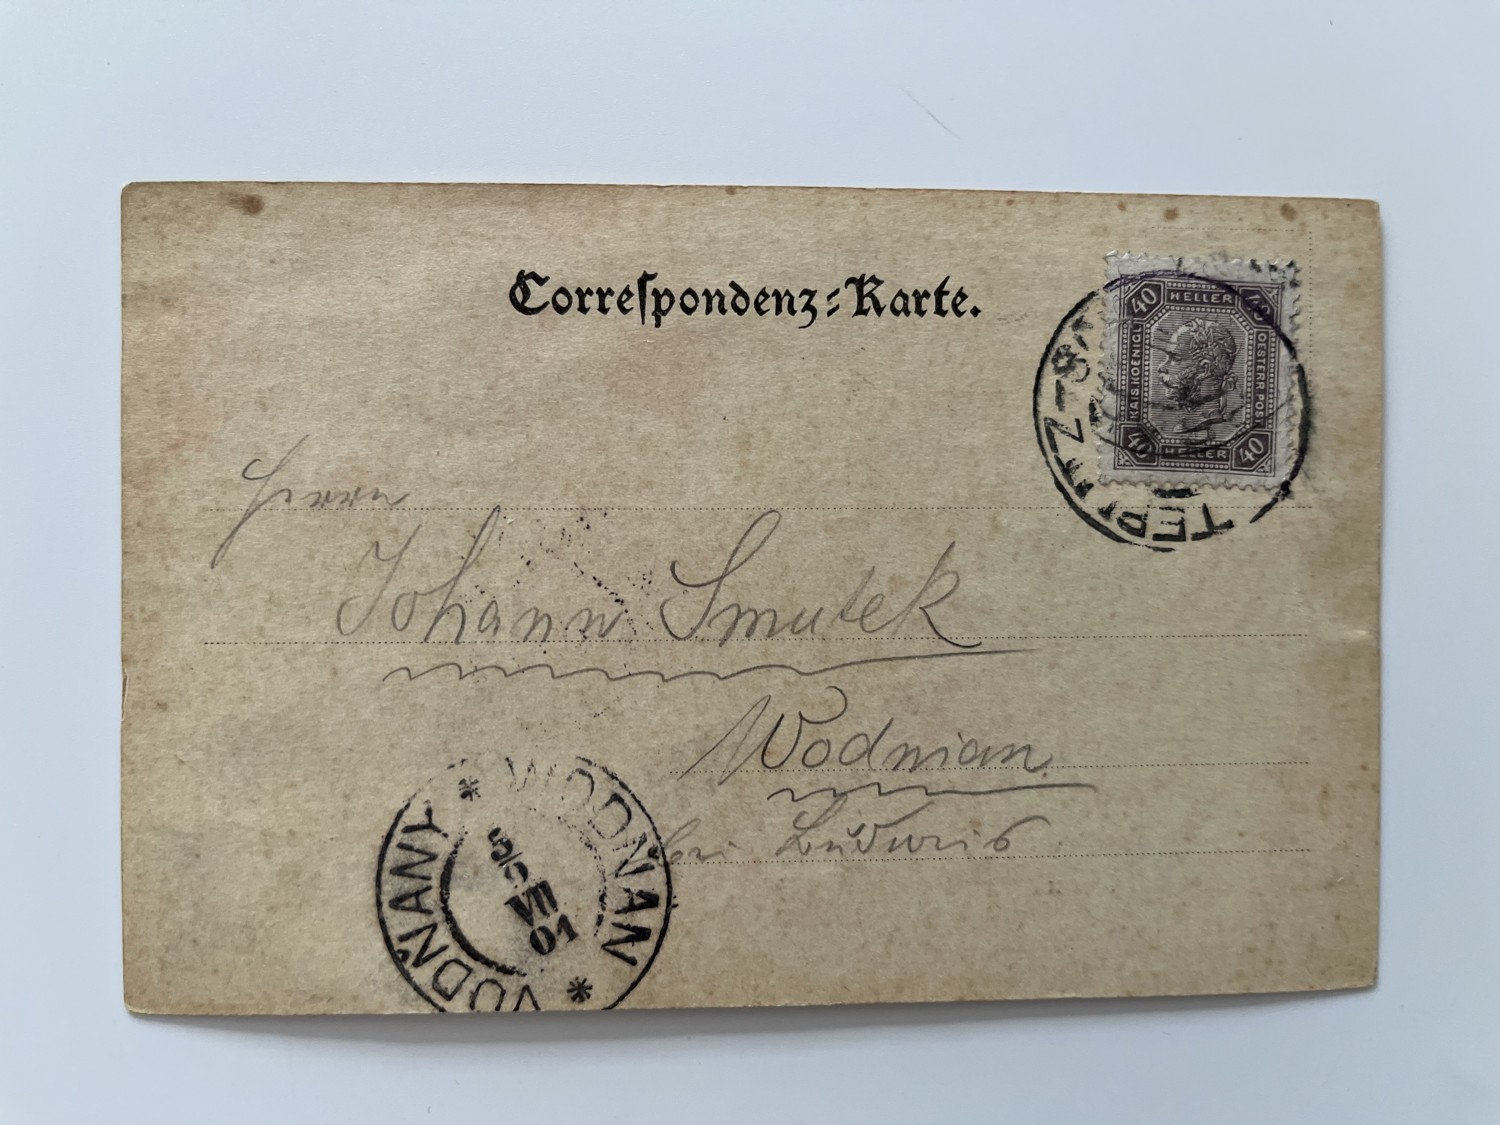 Correspondenz-Karte.
40 HELLER
KAIS. KOENIGL.
OESTERR. POST
40 HELLER 40
TEPLITZ-S
Herrn
Johann Smutek
Wodnian
bei
WODŇAN * VODŇANY *
5
VI
01